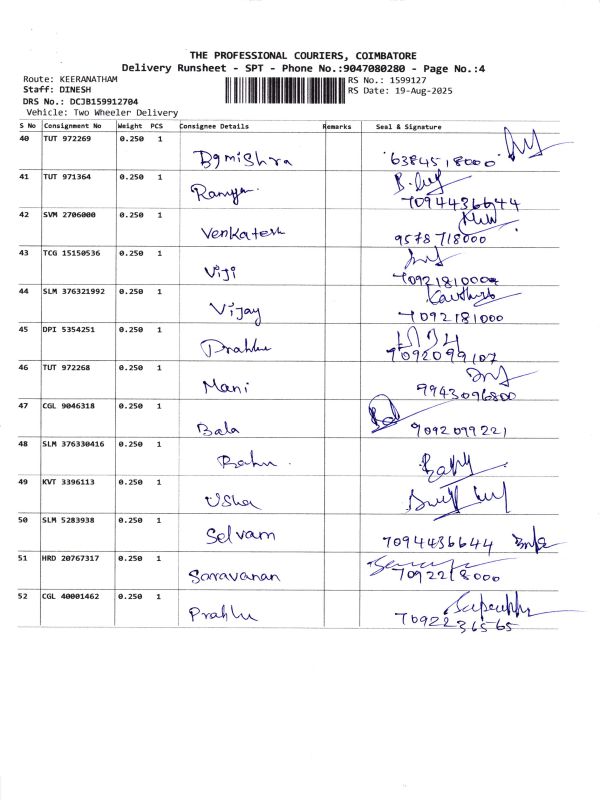 THE PROFESSIONAL COURIERS, COIMBATORE
Delivery Runsheet - SPT - Phone No.:9047080280 - Page No.:4
Route: KEERANATHAM
RS No.: 1599127
Staff: DINESH
RS Date: 19-Aug-2025
DRS No.: DCJB159912704
Vehicle: Two Wheeler Delivery
S No Consignment No Weight PCS Consignee Details Remarks Seal & Signature
40 TUT 972269 0.250 1
Bgmishra 6384518000
41 TUT 971364 0.250 1
Ramya 7094436644
42 SVM 2706000 0.250 1
Venkatesh 9578718000
43 TCG 15150536 0.250 1
Viji 7092181000
44 SLM 376321992 0.250 1
Vijay 7092181000
45 DPI 5354251 0.250 1
Prabhu 7092099107
46 TUT 972268 0.250 1
Mani 9943096800
47 CGL 9046318 0.250 1
Bala 9092099221
48 SLM 376330416 0.250 1
49 KVT 3396113 0.250 1
Usha
50 SLM 5283938 0.250 1
Selvam 7094436644
51 HRD 20767317 0.250 1
Saravanan 7092218000
52 CGL 40001462 0.250 1
Prabhu 7092236565